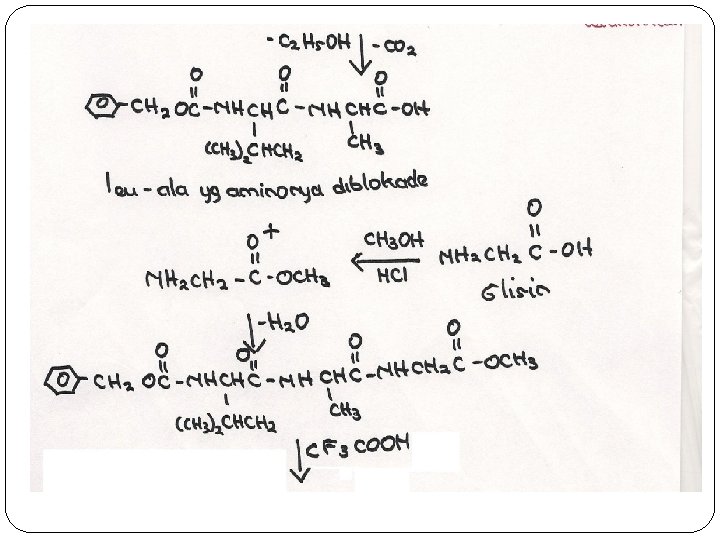 - C2H5-OH | - CO2
O O O
-CH2 OC-NHCHC-NHCHC-OH
(CH3)2CHCH2 CH3
leu-ala yg aminonya diblokade
O + CH3OH O
NH2CH2-C-OCH3 HCl NH2CH2C-OH
Glisin
-H2O
O O O O
-CH2 OC-NHCHC-NHCHC-NHCH2C-OCH3
(CH3)2CHCH2 CH3
CF3COOH